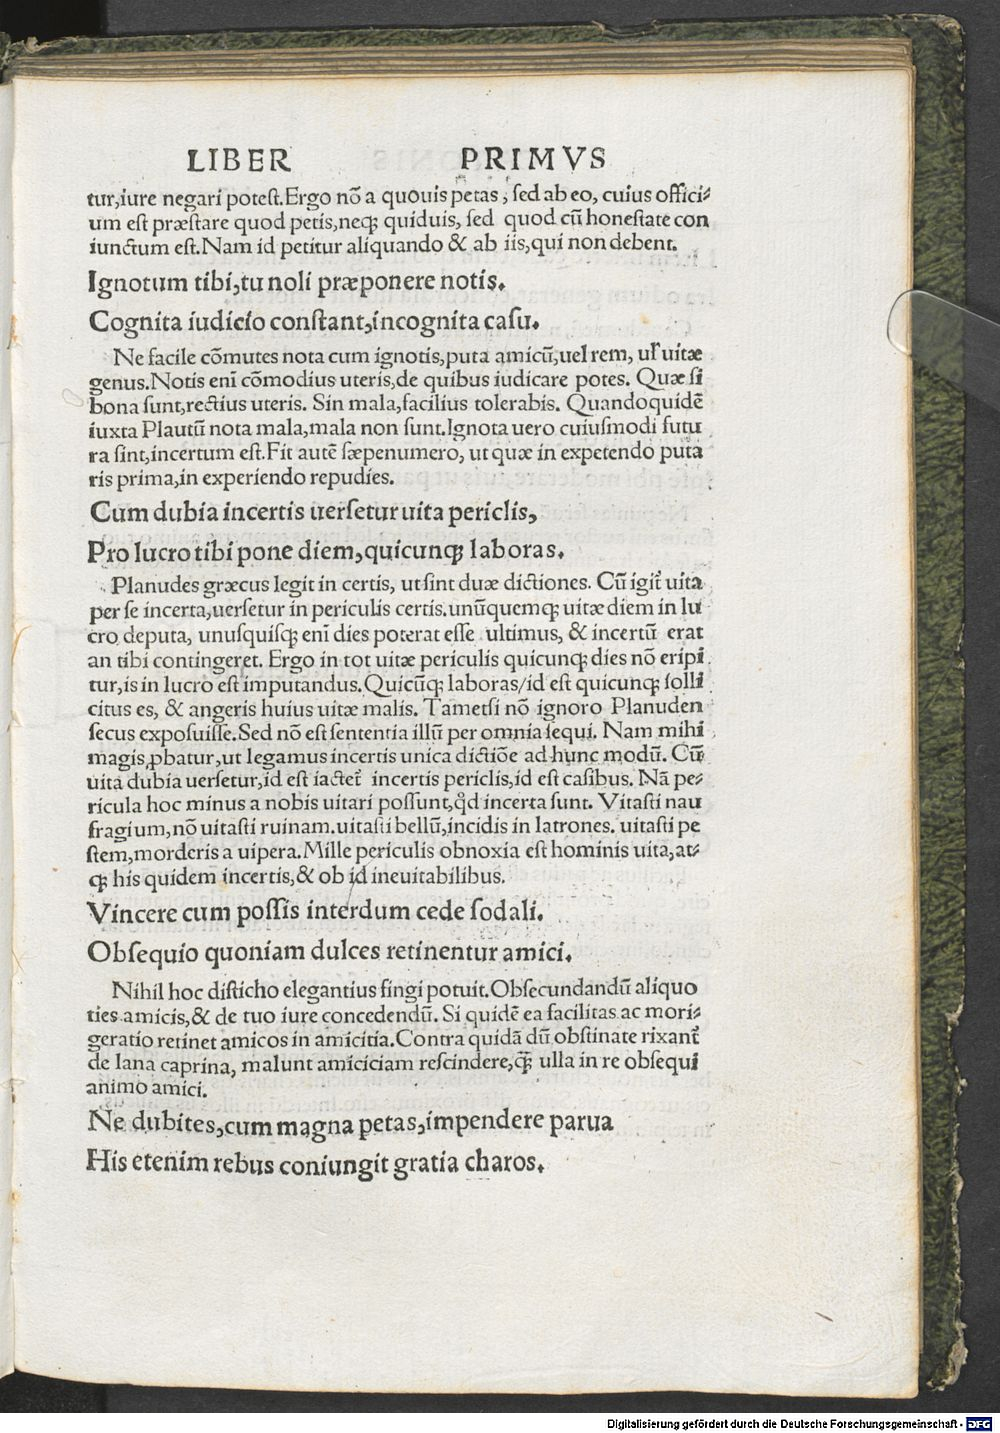 LIBER PRIMVS
tur,iure negari potest.Ergo nõ a quouis petas, sed ab eo, cuius offici⸗
um est præstare quod petis,neqꝫ quiduis, sed quod cũ honestate con
iunctum est.Nam id petitur aliquando & ab iis,qui non debent.
Ignotum tibi,tu noli præponere notis.
Cognita iudicio constant,incognita casu.
Ne facile cõmutes nota cum ignotis,puta amicũ,uel rem, uł uitæ
genus.Notis eni cõmodius uteris,de quibus iudicare potes. Quæ si
bona sunt,rectius uteris. Sin mala,facilius tolerabis. Quandoquidẽ
iuxta Plautũ nota mala,mala non sunt.Ignota uero cuiusmodi futu
ra sint,incertum est.Fit autẽ sæpenumero, ut quæ in expetendo puta
ris prima,in experiendo repudies.
Cum dubia incertis uersetur uita periclis,
Pro lucro tibi pone diem,quicunqꝫ laboras.
Planudes græcus legit in certis, ut sint duæ dictiones. Cũ igit᷑ uita
per se incerta,uersetur in periculis certis.unũquemqꝫ uitæ diem in lu
cro deputa, unusquisqꝫ eni dies poterat esse ultimus, & incertũ erat
an tibi contingeret. Ergo in tot uitæ periculis quicunqꝫ dies nõ eripi
tur,is in lucro est imputandus.Quicũqꝫ laboras/id est quicunqꝫ solli
citus es, & angeris huius uitæ malis. Tametsi nõ ignoro Planuden
secus exposuisse.Sed nõ est sententia illũ per omnia sequi. Nam mihi
magis ꝓbatur,ut legamus incertis unica dictiõe ad hunc modũ. Cũ
uita dubia uersetur,id est iactet᷑ incertis periclis,id est casibus. Nã pe⸗
ricula hoc minus a nobis uitari possunt,qđ incerta sunt. Vitasti nau
fragium,nõ uitasti ruinam.uitasti bellũ,incidis in latrones. uitasti pe
stem,morderis a uipera.Mille periculis obnoxia est hominis uita,at⸗
qꝫ his quidem incertis,& ob id ineuitabilibus.
Vincere cum possis interdum cede sodali.
Obsequio quoniam dulces retinentur amici.
Nihil hoc disticho elegantius fingi potuit.Obsecundandũ aliquo
ties amicis,& de tuo iure concedendũ. Si quidẽ ea facilitas ac mori⸗
geratio retinet amicos in amicitia.Contra quidã dũ obstinate rixant᷑
de lana caprina, malunt amiciciam rescindere,qꝫ̃ ulla in re obsequi
animo amici.
Ne dubites,cum magna petas,impendere parua
His etenim rebus coniungit gratia charos.
Digitalisierung gefördert durch die Deutsche Forschungsgemeinschaft - DFG